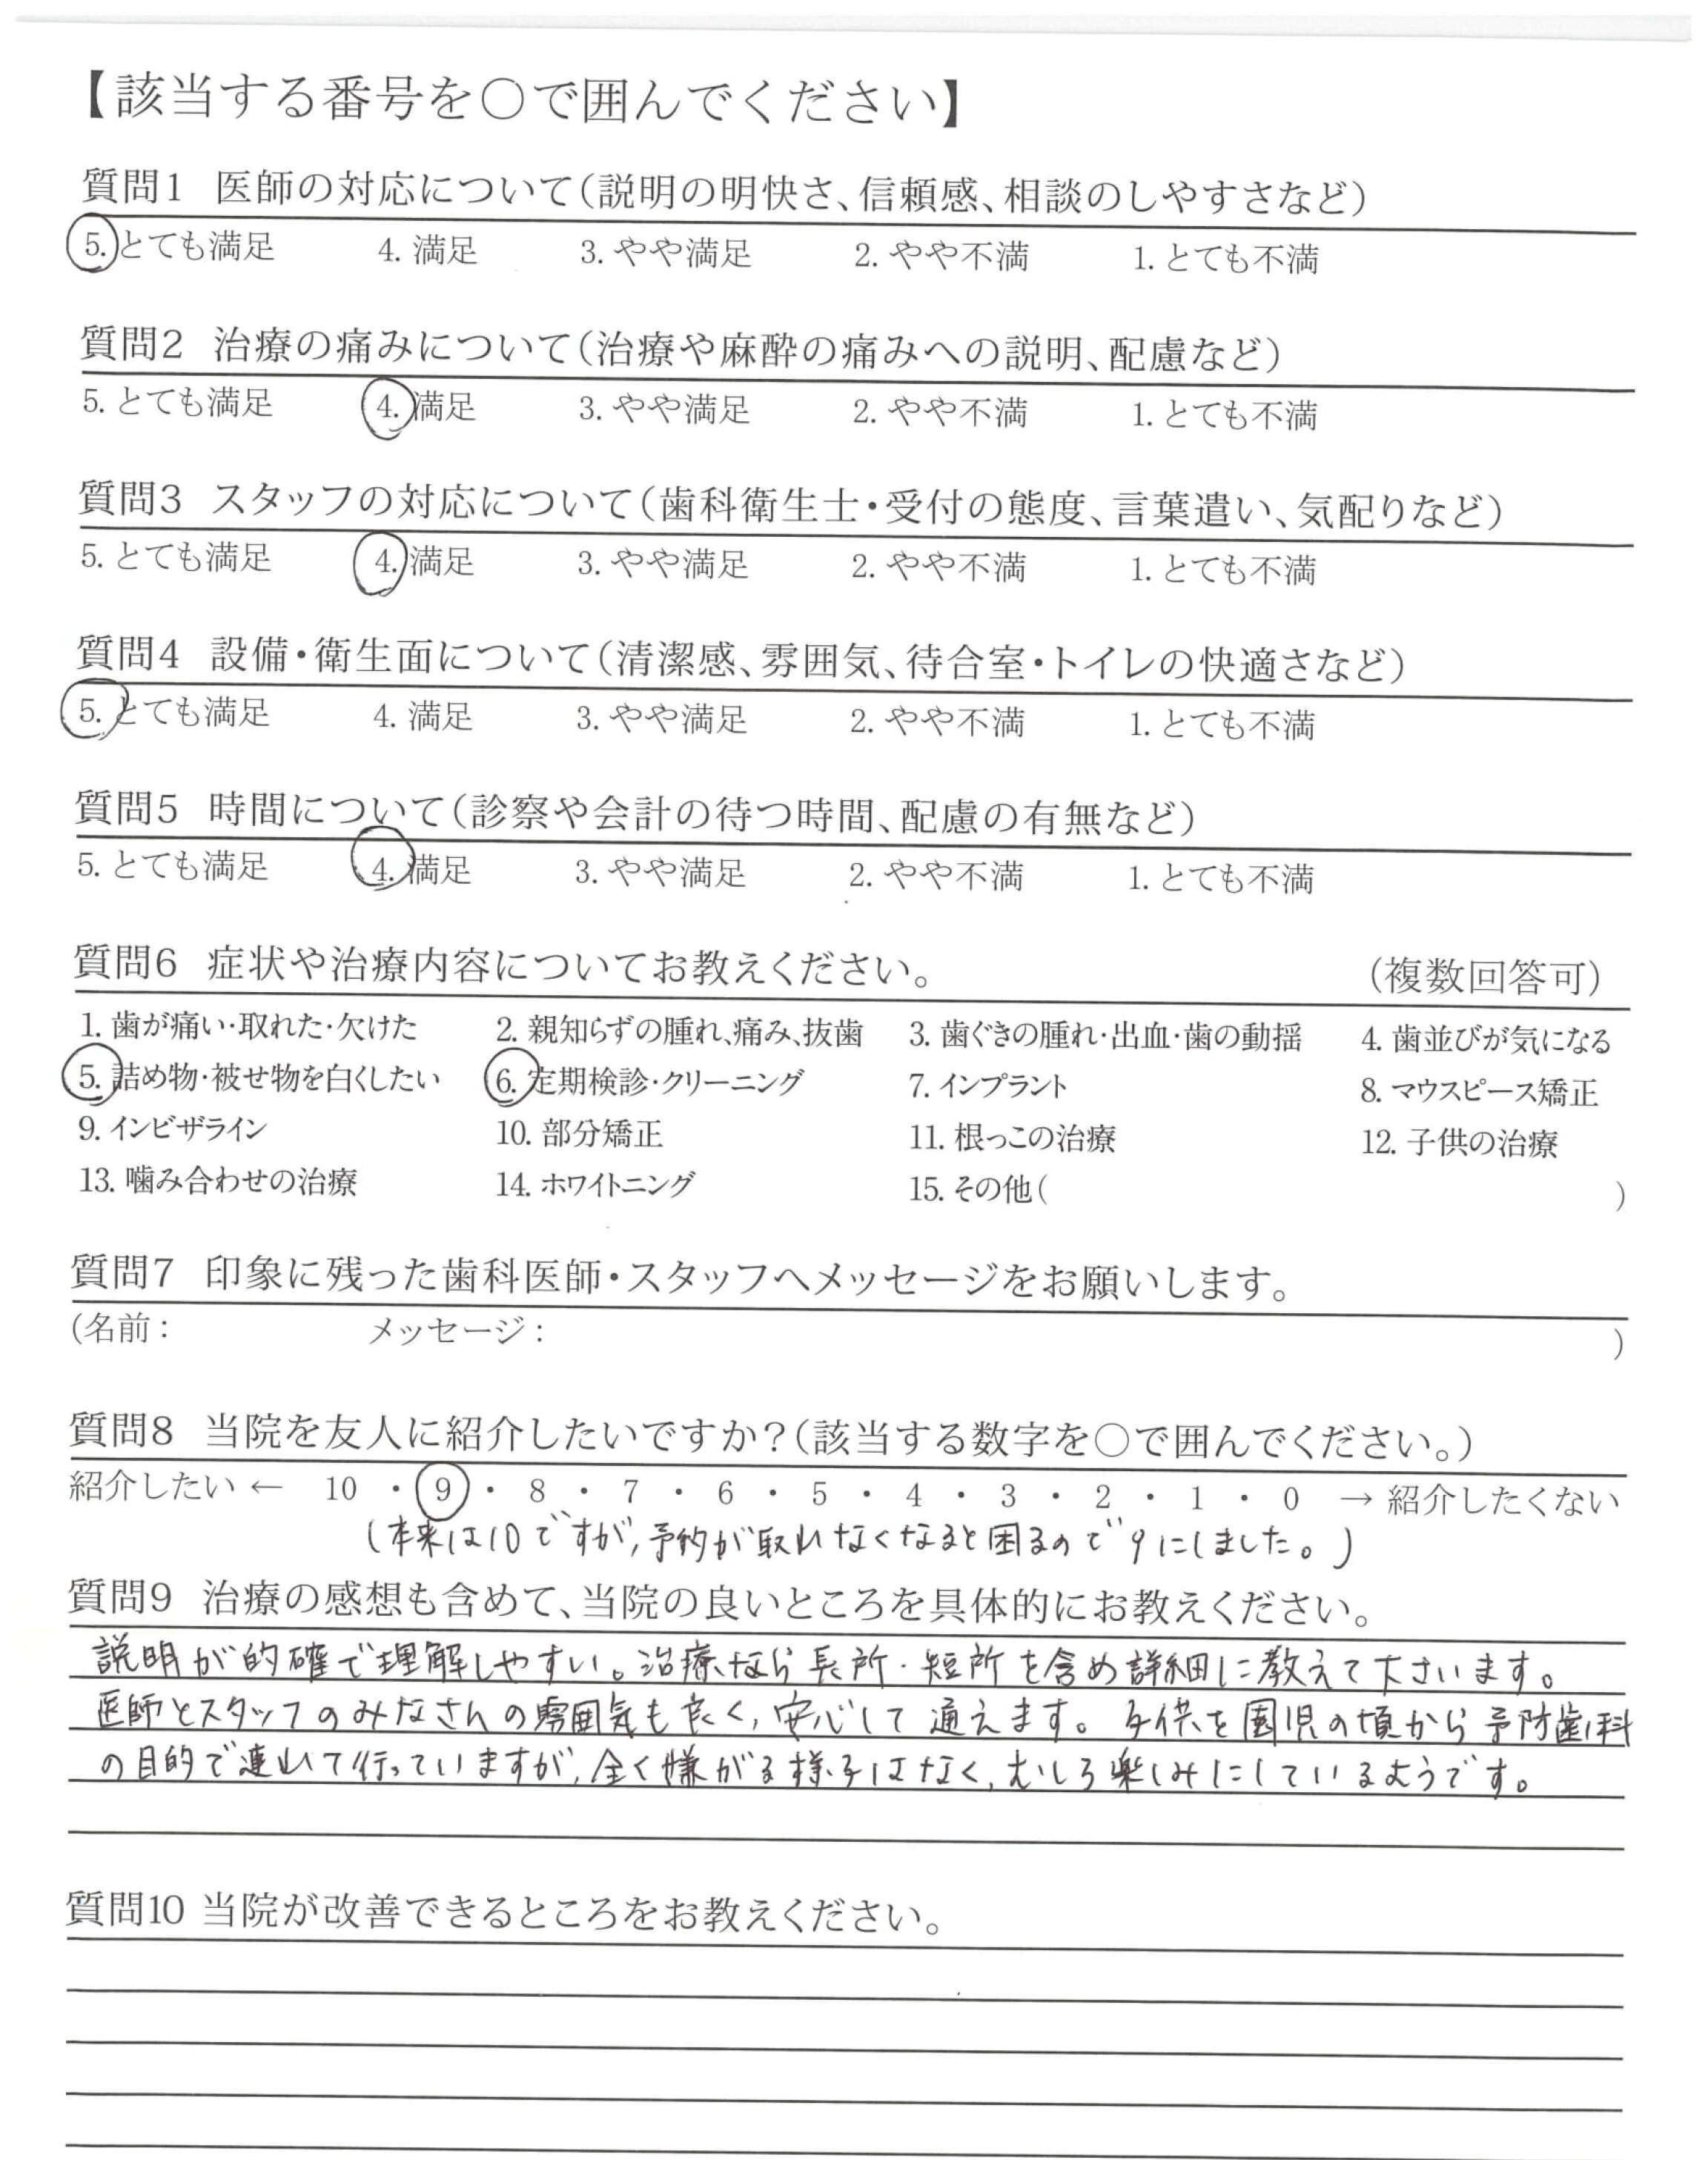 【該当する番号を○で囲んでください】
質問1 医師の対応について(説明の明快さ、信頼感、相談のしやすさなど)
5. とても満足 4. 満足 3. やや満足 2. やや不満 1. とても不満
質問2 治療の痛みについて(治療や麻酔の痛みへの説明、配慮など)
5. とても満足 4. 満足 3. やや満足 2. やや不満 1. とても不満
質問3 スタッフの対応について(歯科衛生士・受付の態度、言葉遣い、気配りなど)
5. とても満足 4. 満足 3. やや満足 2. やや不満 1. とても不満
質問4 設備・衛生面について(清潔感、雰囲気、待合室・トイレの快適さなど)
5. とても満足 4. 満足 3. やや満足 2. やや不満 1. とても不満
質問5 時間について(診察や会計の待つ時間、配慮の有無など)
5. とても満足 4. 満足 3. やや満足 2. やや不満 1. とても不満
質問6 症状や治療内容についてお教えください。 (複数回答可)
1. 歯が痛い・取れた・欠けた 2. 親知らずの腫れ、痛み、抜歯 3. 歯ぐきの腫れ・出血・歯の動揺 4. 歯並びが気になる
5. 詰め物・被せ物を白くしたい 6. 定期検診・クリーニング 7. インプラント 8. マウスピース矯正
9. インビザライン 10. 部分矯正 11. 根っこの治療 12. 子供の治療
13. 噛み合わせの治療 14. ホワイトニング 15. その他( )
質問7 印象に残った歯科医師・スタッフへメッセージをお願いします。
(名前: メッセージ: )
質問8 当院を友人に紹介したいですか?(該当する数字を○で囲んでください。)
紹介したい ← 10 ・ 9 ・ 8 ・ 7 ・ 6 ・ 5 ・ 4 ・ 3 ・ 2 ・ 1 ・ 0 → 紹介したくない
(本来は10ですが、予約が取れなくなると困るので9にしました。)
質問9 治療の感想も含めて、当院の良いところを具体的にお教えください。
説明が的確で理解しやすい。治療なら長所・短所を含め詳細に教えて下さいます。
医師とスタッフのみなさんの雰囲気も良く、安心して通えます。子供を園児の頃から予防歯科
の目的で連れて行っていますが、全く嫌がる様子はなく、むしろ楽しみにしているようです。
質問10 当院が改善できるところをお教えください。